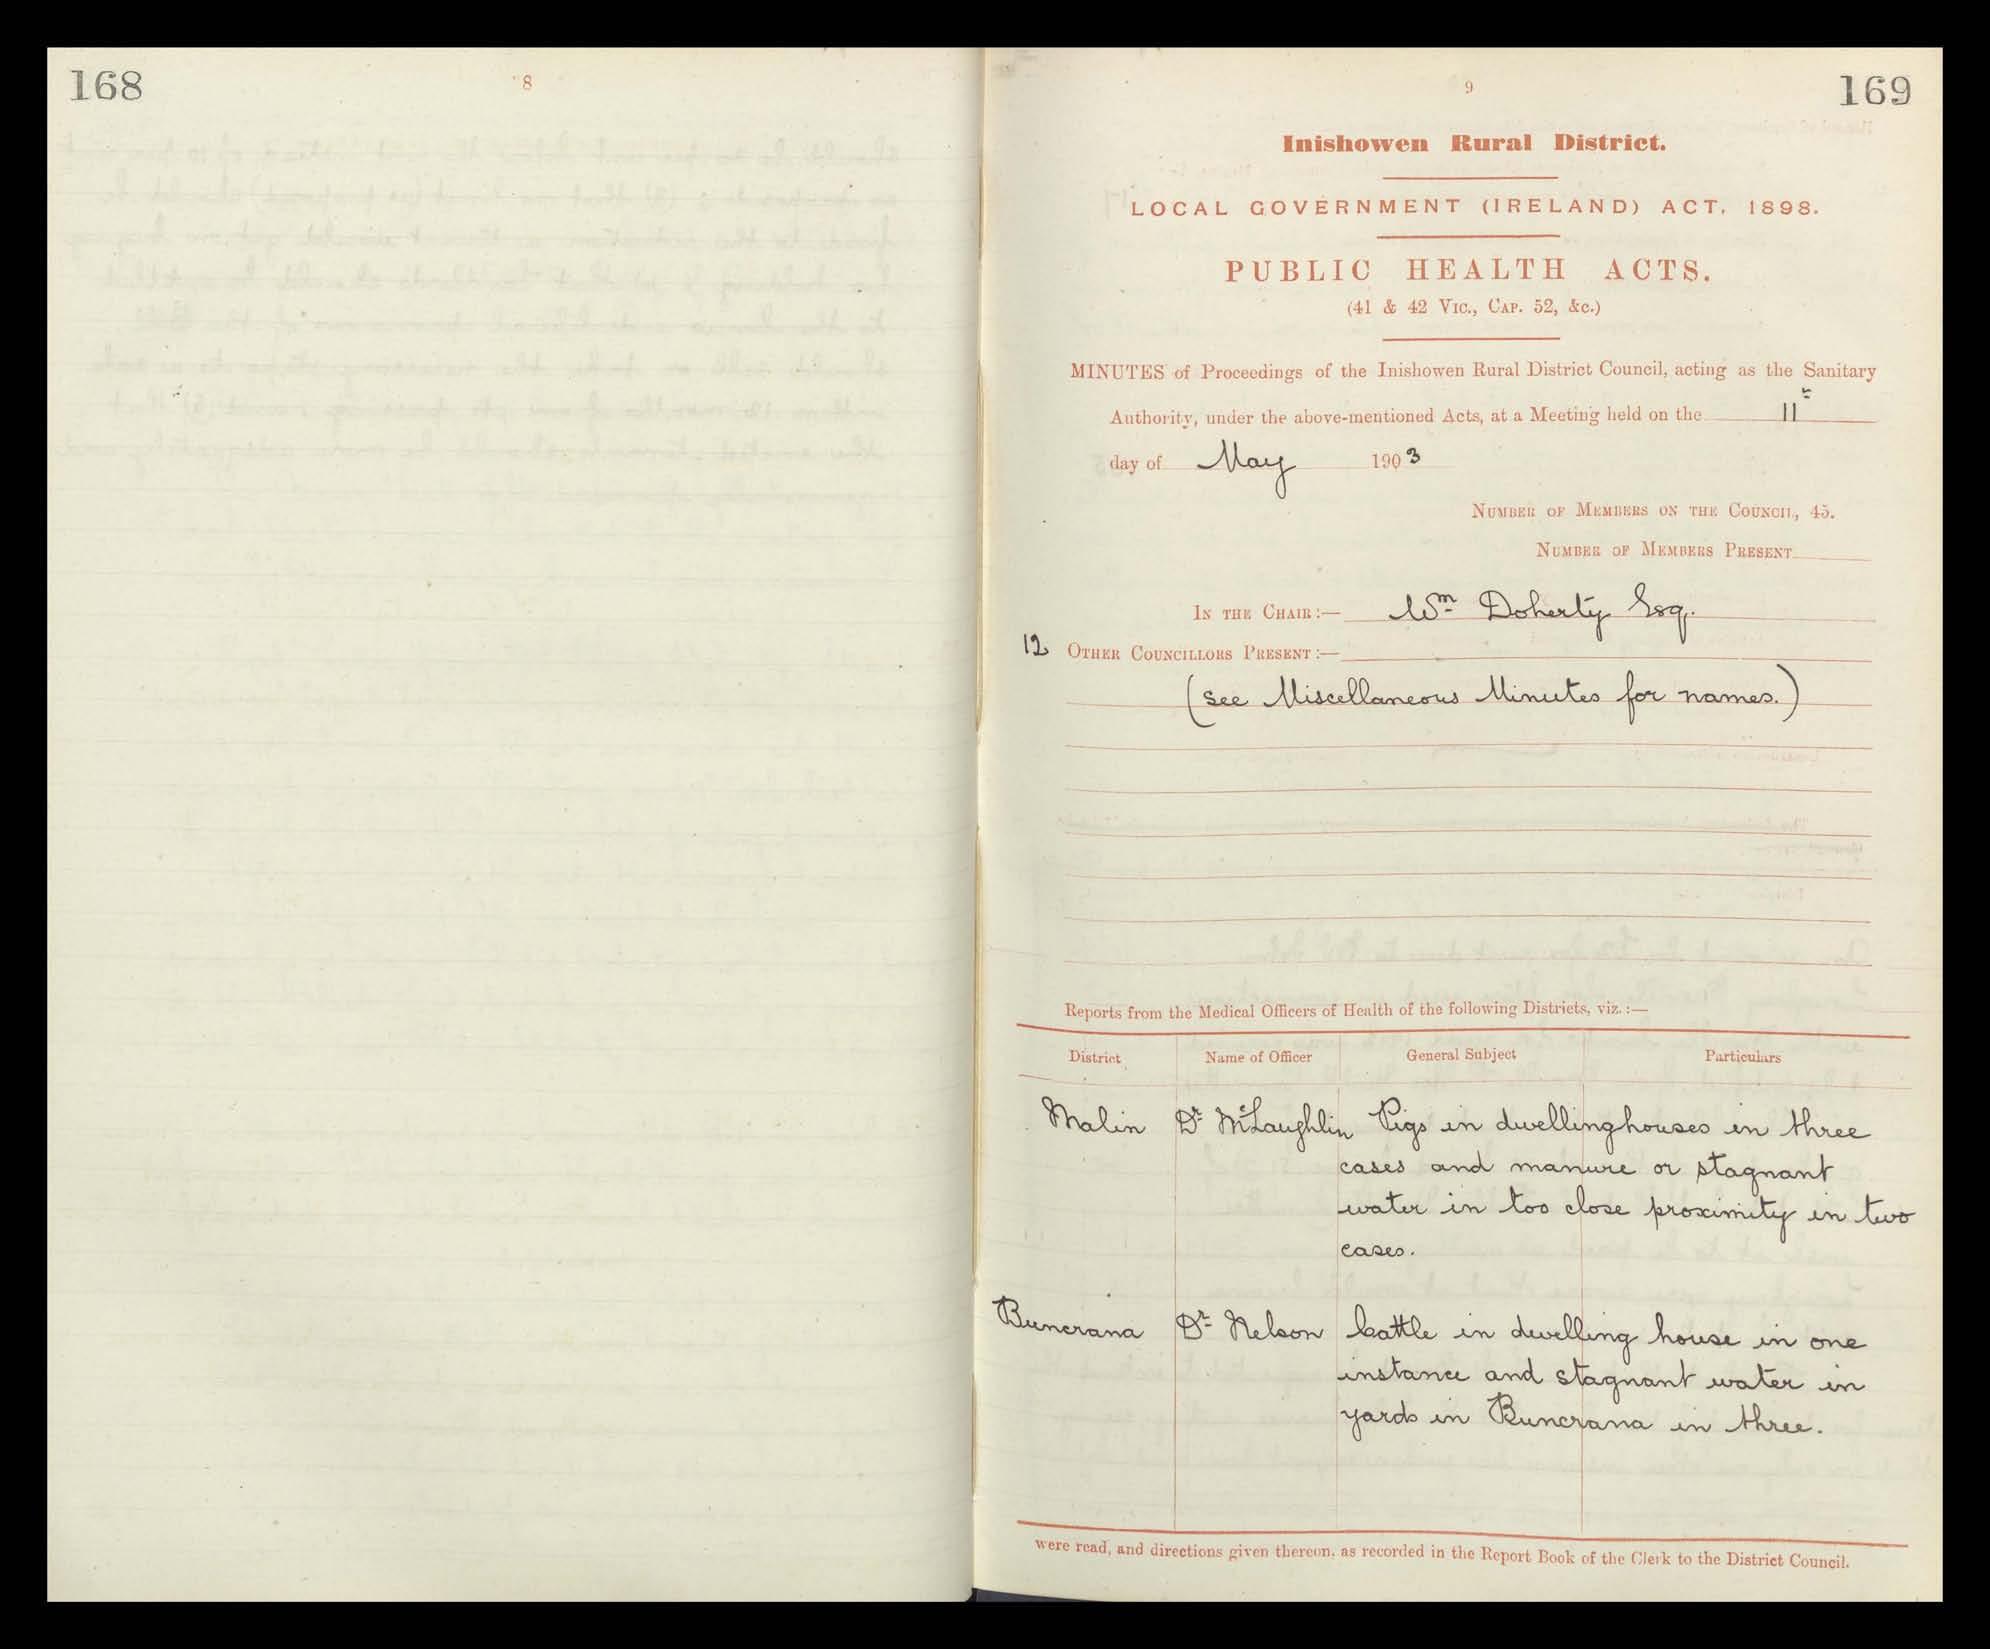 168
8
9
169
Inishowen Rural District.
LOCAL GOVERNMENT (IRELAND) ACT, 1898.
PUBLIC HEALTH ACTS.
(41 & 42 VIC., CAP. 52, &c.)
MINUTES of Proceedings of the Inishowen Rural District Council, acting as the Sanitary
Authority, under the above-mentioned Acts, at a Meeting held on the 11th
day of May 1903
NUMBER OF MEMBERS ON THE COUNCIL, 45.
NUMBER OF MEMBERS PRESENT
IN THE CHAIR:— Wm Doherty Esq.
12 OTHER COUNCILLORS PRESENT:—
(see Miscellaneous Minutes for names.)
Reports from the Medical Officers of Health of the following Districts, viz.:—
District Name of Officer General Subject Particulars
Malin Dr McLaughlin Pigs in dwellinghouses in three
cases and manure or stagnant
water in too close proximity in two
cases.
Buncrana Dr Nelson Cattle in dwelling house in one
instance and stagnant water in
yards in Buncrana in three.
were read, and directions given thereon, as recorded in the Report Book of the Clerk to the District Council.